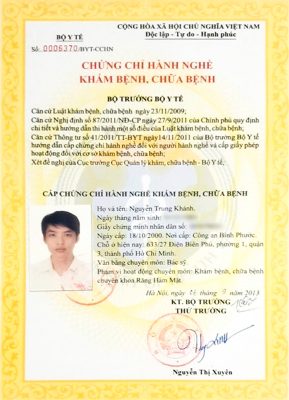 CỘNG HÒA XÃ HỘI CHỦ NGHĨA VIỆT NAM
Độc lập - Tự do - Hạnh phúc
BỘ Y TẾ
Số: 0006370/BYT-CCHN
CHỨNG CHỈ HÀNH NGHỀ
KHÁM BỆNH, CHỮA BỆNH
BỘ TRƯỞNG BỘ Y TẾ
Căn cứ Luật khám bệnh, chữa bệnh ngày 23/11/2009;
Căn cứ Nghị định số 87/2011/NĐ-CP ngày 27/9/2011 của Chính phủ quy
định chi tiết và hướng dẫn thi hành một số điều của Luật khám bệnh, chữa bệnh;
Căn cứ Thông tư số 41/2011/TT-BYT ngày 14/11/2011 của Bộ trưởng Bộ Y tế
hướng dẫn cấp chứng chỉ hành nghề đối với người hành nghề và cấp giấy phép
hoạt động đối với cơ sở khám bệnh, chữa bệnh;
Xét đề nghị của Cục trưởng Cục Quản lý khám, chữa bệnh - Bộ Y tế;
CẤP CHỨNG CHỈ HÀNH NGHỀ KHÁM BỆNH, CHỮA BỆNH
Họ và tên: Nguyễn Trung Khánh.
Ngày tháng năm sinh:
Giấy chứng minh nhân dân số:
Ngày cấp: 18/10/2000. Nơi cấp: Công an Bình Phước.
Chỗ ở hiện nay: 633/27 Điện Biên Phủ, phường 1, quận
3, thành phố Hồ Chí Minh.
Văn bằng chuyên môn: Bác sỹ
Phạm vi hoạt động chuyên môn: Khám bệnh, chữa bệnh
chuyên khoa Răng Hàm Mặt.
Hà Nội, ngày tháng 7 năm 2013
KT. BỘ TRƯỞNG
THỨ TRƯỞNG
Nguyễn Thị Xuyên